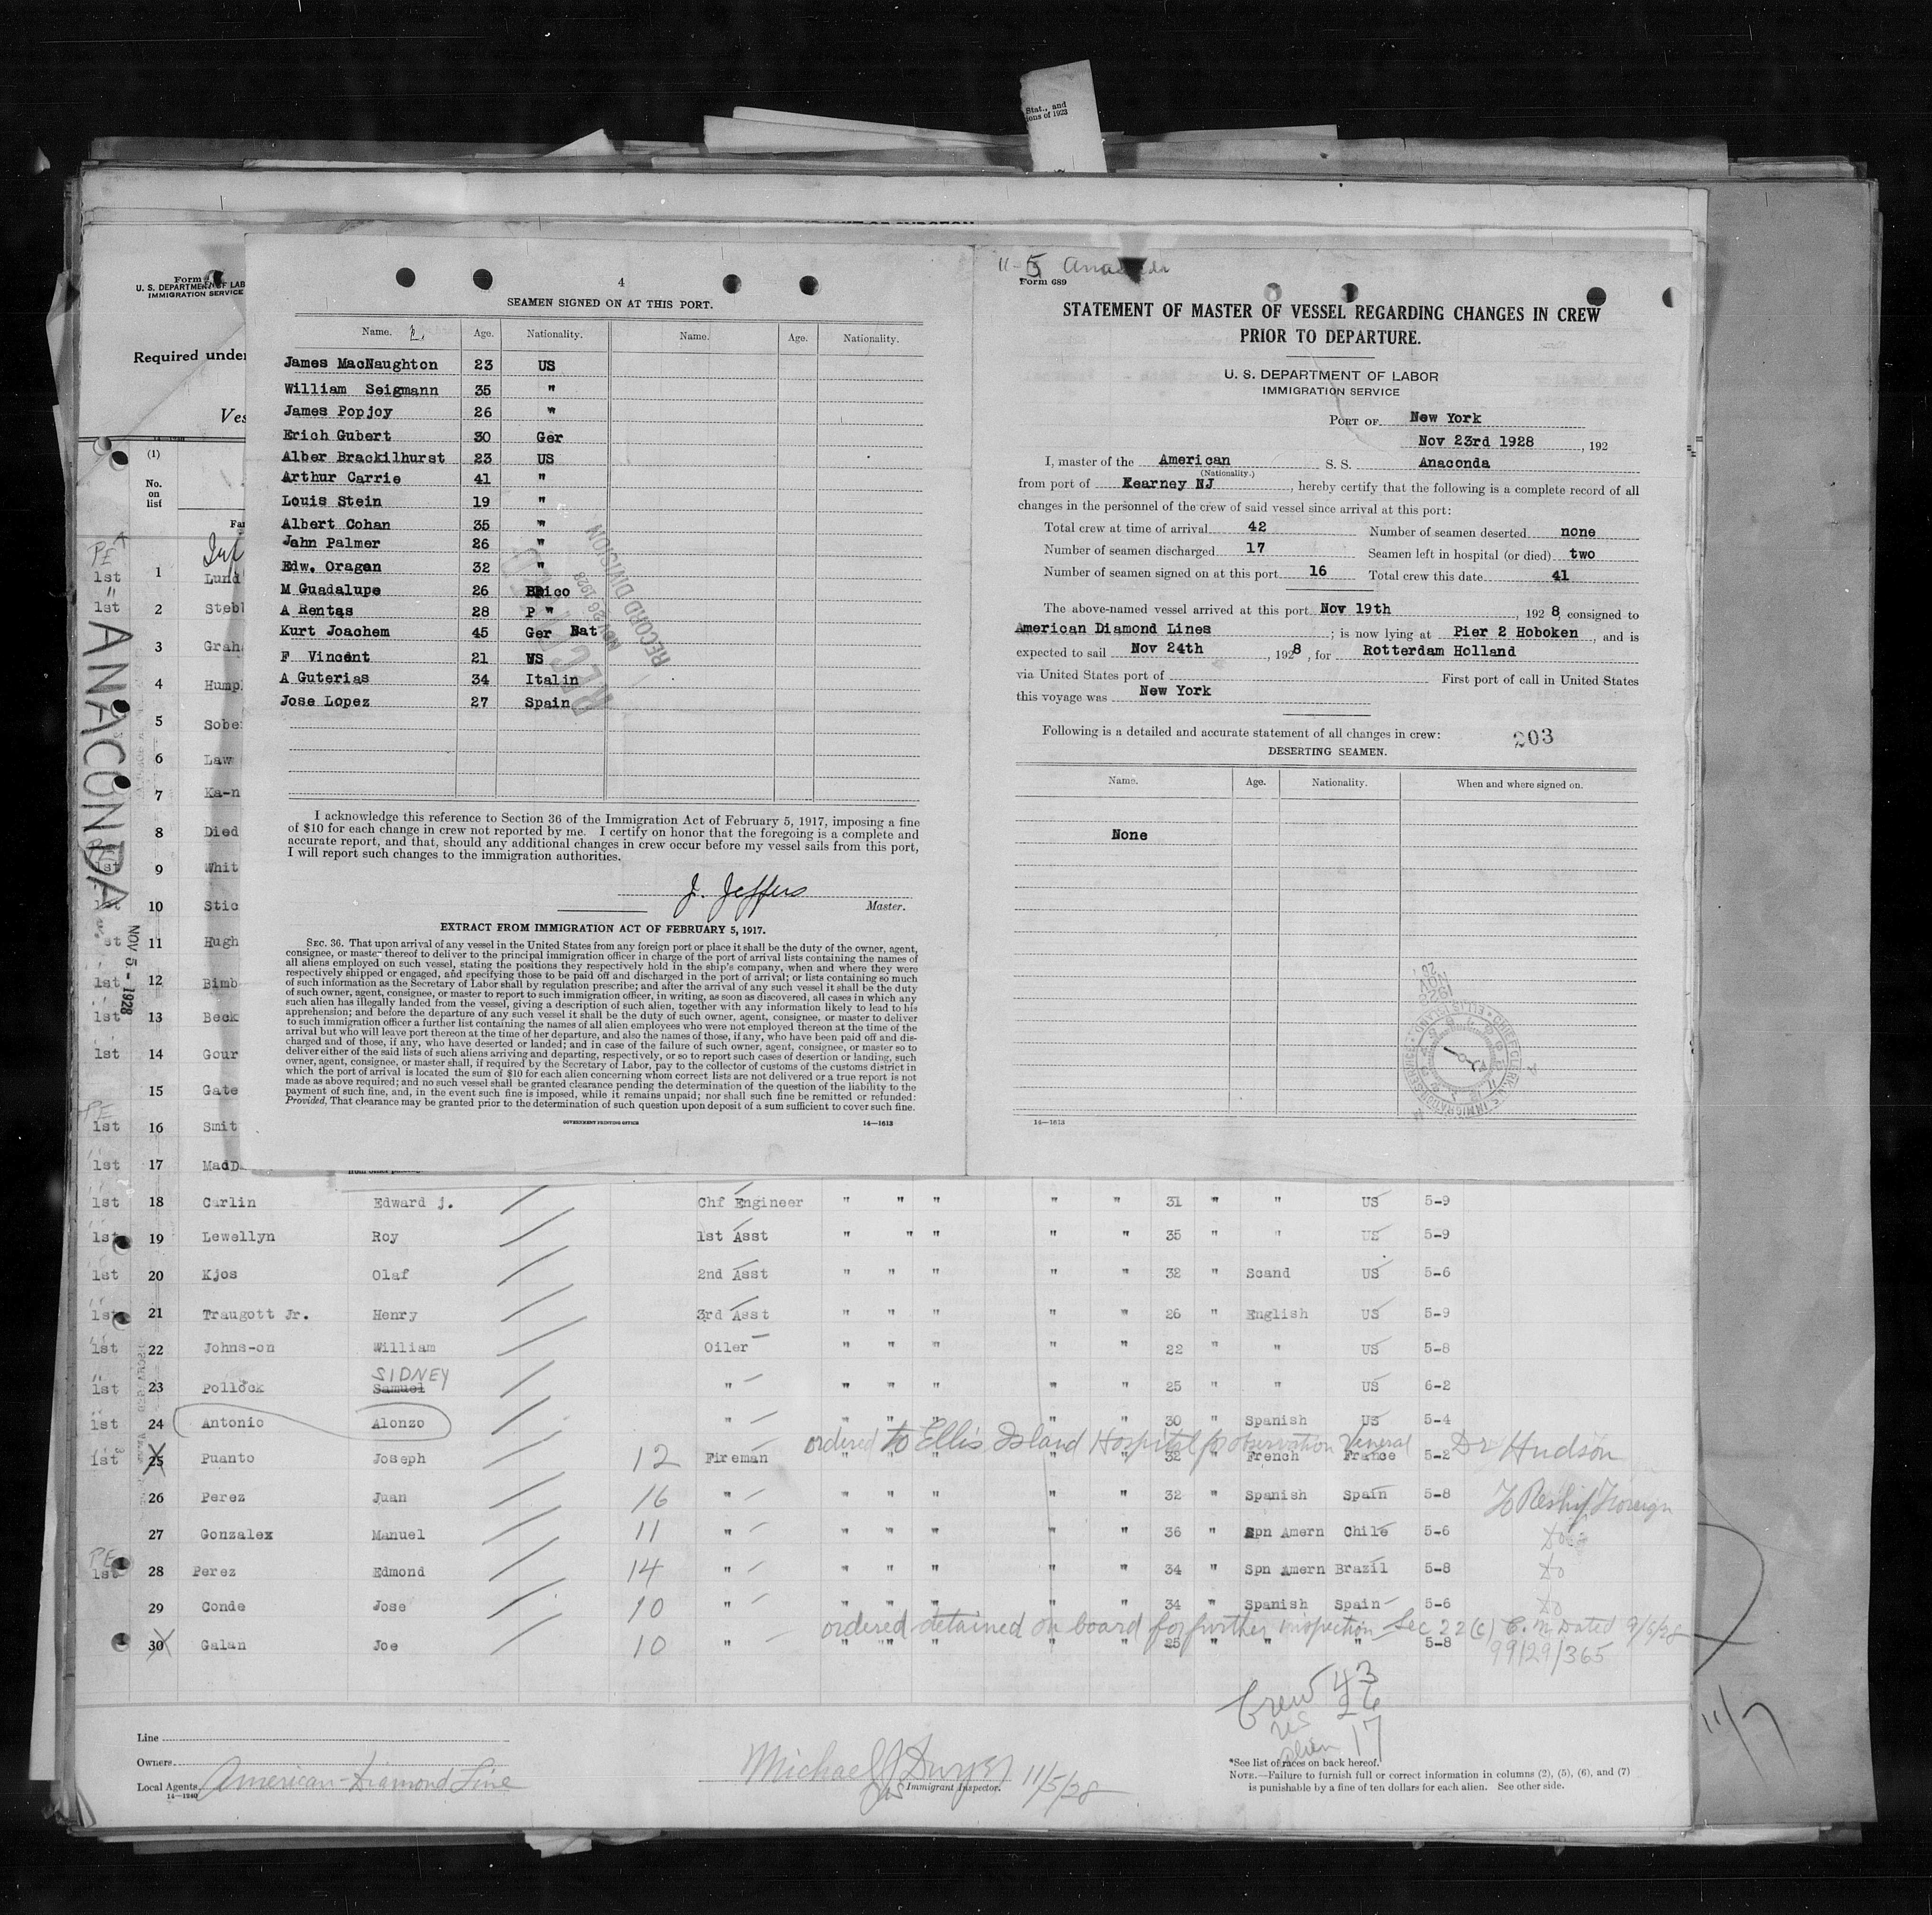 Stat., and
ions of 1923
Form
U. S. DEPARTMENT OF LAB
IMMIGRATION SERVICE
Required under
Ves
(1)
No.
on
list
Fa
ANACONDA
NOV 5 - 1928
PE
1st 1 Lund
1st 2 Stebl
3 Grah
4 Humpl
5 Sobe
6 Law
7 Ka-n
8 Died
1st 9 Whit
1st 10 Stic
st 11 Hugh
1st 12 Bimb
1st 13 Beck
1st 14 Gour
15 Gate
PE
1st 16 Smit
1st 17 MacD
4
SEAMEN SIGNED ON AT THIS PORT.
Name. Age. Nationality. Name. Age. Nationality.
James MacNaughton 23 US
William Seigmann 35 "
James Popjoy 26 "
Erich Gubert 30 Ger
Alber Brackilhurst 23 US
Arthur Carrie 41 "
Louis Stein 19 "
Albert Cohan 35 "
Jahn Palmer 26 "
Edw. Oragan 32 "
M Guadalupe 26 Rico
A Rentas 28 P "
Kurt Joachem 45 Ger Nat
F Vincent 21 US
A Guterias 34 Italin
Jose Lopez 27 Spain
RECEIVED
NOV 26 1928
RECORD DIVISION
I acknowledge this reference to Section 36 of the Immigration Act of February 5, 1917, imposing a fine
of $10 for each change in crew not reported by me. I certify on honor that the foregoing is a complete and
accurate report, and that, should any additional changes in crew occur before my vessel sails from this port,
I will report such changes to the immigration authorities.
J. Jeffers
Master.
EXTRACT FROM IMMIGRATION ACT OF FEBRUARY 5, 1917.
SEC. 36. That upon arrival of any vessel in the United States from any foreign port or place it shall be the duty of the owner, agent,
consignee, or master thereof to deliver to the principal immigration officer in charge of the port of arrival lists containing the names of
all aliens employed on such vessel, stating the positions they respectively hold in the ship's company, when and where they were
respectively shipped or engaged, and specifying those to be paid off and discharged in the port of arrival; or lists containing so much
of such information as the Secretary of Labor shall by regulation prescribe; and after the arrival of any such vessel it shall be the duty
of such owner, agent, consignee, or master to report to such immigration officer, in writing, as soon as discovered, all cases in which any
such alien has illegally landed from the vessel, giving a description of such alien, together with any information likely to lead to his
apprehension; and before the departure of any such vessel it shall be the duty of such owner, agent, consignee, or master to deliver
to such immigration officer a further list containing the names of all alien employees who were not employed thereon at the time of the
arrival but who will leave port thereon at the time of her departure, and also the names of those, if any, who have been paid off and dis-
charged and of those, if any, who have deserted or landed; and in case of the failure of such owner, agent, consignee, or master so to
deliver either of the said lists of such aliens arriving and departing, respectively, or so to report such cases of desertion or landing, such
owner, agent, consignee, or master shall, if required by the Secretary of Labor, pay to the collector of customs of the customs district in
which the port of arrival is located the sum of $10 for each alien concerning whom correct lists are not delivered or a true report is not
made as above required; and no such vessel shall be granted clearance pending the determination of the question of the liability to the
payment of such fine, and, in the event such fine is imposed, while it remains unpaid; nor shall such fine be remitted or refunded:
Provided, That clearance may be granted prior to the determination of such question upon deposit of a sum sufficient to cover such fine.
GOVERNMENT PRINTING OFFICE 14—1613
11-5 Anaconda
Form 689
STATEMENT OF MASTER OF VESSEL REGARDING CHANGES IN CREW
PRIOR TO DEPARTURE.
U. S. DEPARTMENT OF LABOR
IMMIGRATION SERVICE
PORT OF New York
Nov 23rd 1928 , 192
I, master of the American S. S. Anaconda
(Nationality.)
from port of Kearney NJ , hereby certify that the following is a complete record of all
changes in the personnel of the crew of said vessel since arrival at this port:
Total crew at time of arrival 42 Number of seamen deserted none
Number of seamen discharged 17 Seamen left in hospital (or died) two
Number of seamen signed on at this port 16 Total crew this date 41
The above-named vessel arrived at this port Nov 19th , 192 8, consigned to
American Diamond Lines ; is now lying at Pier 2 Hoboken , and is
expected to sail Nov 24th , 1928 , for Rotterdam Holland
via United States port of First port of call in United States
this voyage was New York
Following is a detailed and accurate statement of all changes in crew: 203
DESERTING SEAMEN.
Name. Age. Nationality. When and where signed on.
None
14—1613
1st 18 Carlin Edward j. Chf Engineer " " " " " 31 " " US 5-9
1st 19 Lewellyn Roy 1st Asst " " " " " 35 " " US 5-9
1st 20 Kjos Olaf 2nd Asst " " " " " 32 " Scand US 5-6
1st 21 Traugott Jr. Henry 3rd Asst " " " " " 26 " English US 5-9
1st 22 Johns-on William Oiler " " " " " 22 " " US 5-8
SIDNEY
1st 23 Pollock Samuel " " " " " " 25 " " US 6-2
1st 24 Antonio Alonzo " " " " " " 30 " Spanish US 5-4
ordered to Ellis Island Hospital for observation Veneral Dr Hudson
1st 25 Puanto Joseph 12 Fireman " " " " " 32 " French France 5-2
26 Perez Juan 16 " " " " " " 32 " Spanish Spain 5-8 To Reship Foreign
27 Gonzalex Manuel 11 " " " " " " 36 " Spn Amern Chile 5-6 do
PE
1st 28 Perez Edmond 14 " " " " " " 34 " Spn Amern Brazil 5-8 do
29 Conde Jose 10 " " " " " " 34 " Spanish Spain 5-6 do
ordered detained on board for further inspection Sec 22(c) C.M. Dated 9/6/28
30 Galan Joe 10 " " " " " " 25 " " " 5-8 99129/365
Crew 43
US 26
alien 17
11/7
Line
Owners
Local Agents American-Diamond Line
14—1240
Michael J Dwyer 11/5/28
Immigrant Inspector.
*See list of races on back hereof.
NOTE.—Failure to furnish full or correct information in columns (2), (5), (6), and (7)
is punishable by a fine of ten dollars for each alien. See other side.